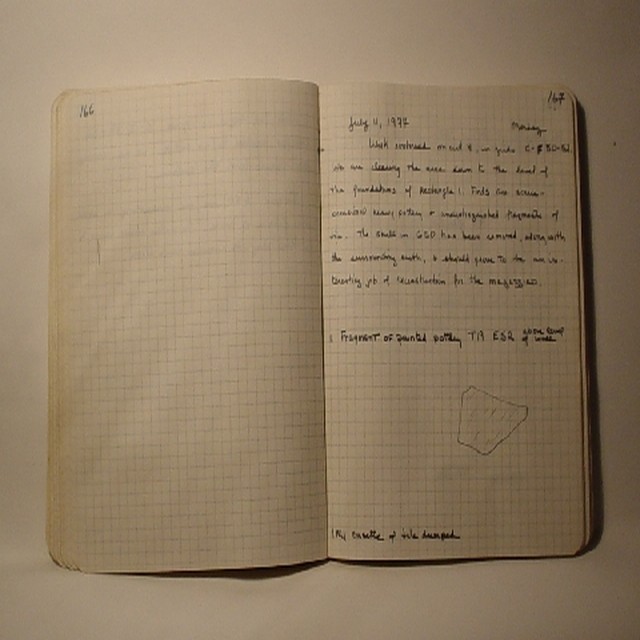 166
167
July 11, 1977 Monday
Work continued on cut 8, in grids
We are clearing the area down to the level of
the foundations of Rectangle 1. Finds are
occasional heavy pottery & undistinguished fragments of
The in G50 has been removed, along with
the surrounding earth, & should prove to be an in-
teresting job of reconstruction for the magazzino.
1 Fragment of painted pottery T19 E52 above level of wall
1 cassette of tile dumped